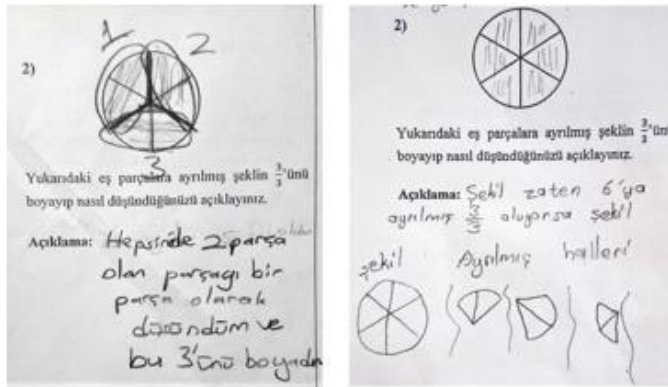 1
2
2)
3
Yukarıdaki eş parçalara ayrılmış şeklin 3/3'ünü
boyayıp nasıl düşündüğünüzü açıklayınız.
Açıklama: Hepsinde 2 parça
olan parçayı bir
parça olarak
düşündüm ve
bu 3'ünü boyadım
2)
Yukarıdaki eş parçalara ayrılmış şeklin 3/3'ün
boyayıp nasıl düşündüğünüzü açıklayınız.
Açıklama: Şekil zaten 6'ya
ayrılmış 3/3 oluyorsa şekil
şekil Ayrılmış halleri